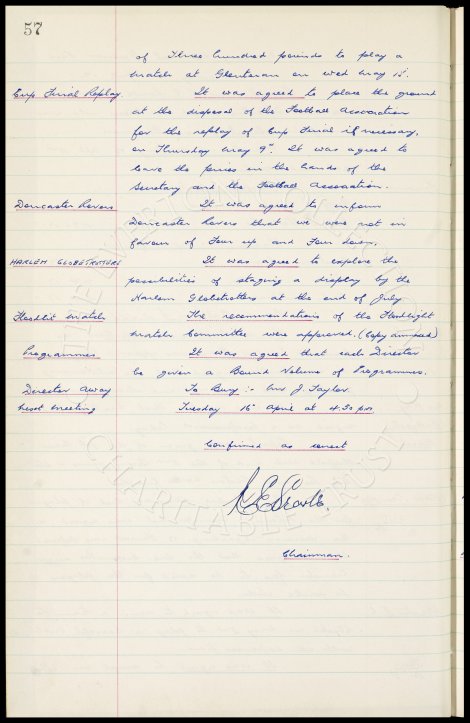 57
of Three hundred pounds to play a
match at Glentoran on Wed May 15.
Cup Final Replay It was agreed to place the ground
at the disposal of the Football Association
for the replay of Cup Final if necessary,
on Thursday May 9th. It was agreed to
leave the prices in the hands of the
Secretary and the Football Association.
Doncaster Rovers It was agreed to inform
Doncaster Rovers that we were not in
favour of Four up and Four down.
HARLEM GLOBETROTTERS It was agreed to explore the
possibilities of staging a display by the
Harlem Globetrotters at the end of July
Floodlit Match The recommendations of the Floodlight
Match Committee were approved. (Copy annexed)
Programmes It was agreed that each Director
be given a Bound Volume of Programmes.
Director Away To Bury :- Mr J. Taylor
Next Meeting Tuesday 16 April at 4.30 pm
Confirmed as correct
Chairman.
CHARITABLE TRUST